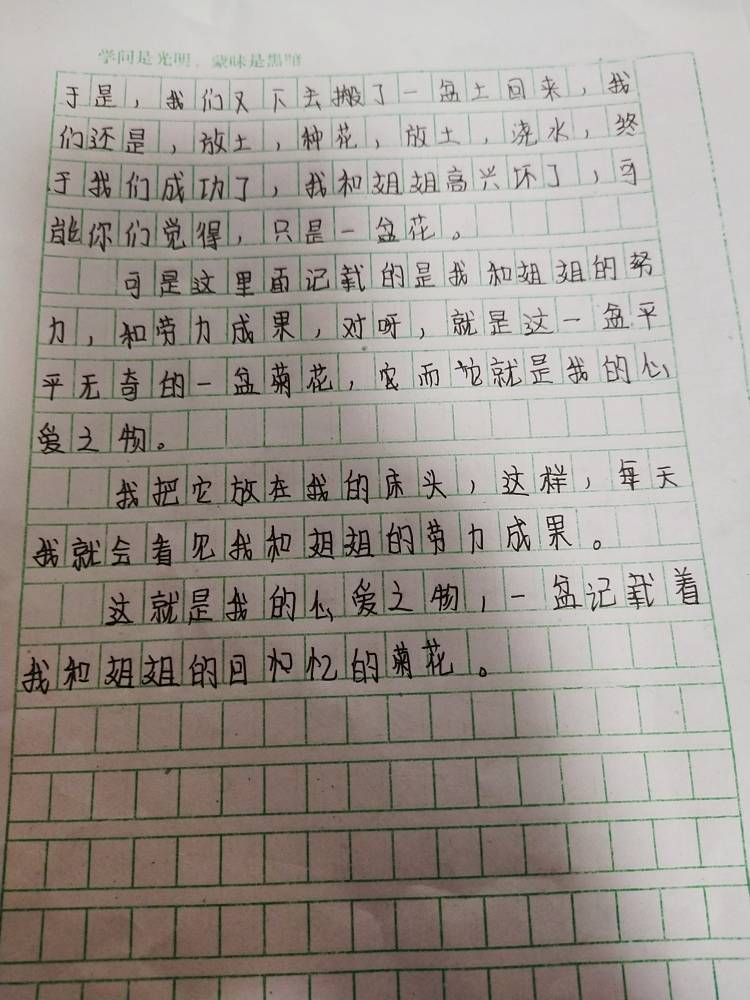 学问是光明，蒙昧是黑暗
于是，我们又下去搬了一盆土回来，我
们还是，放土，种花，放土，浇水，终
于我们成功了，我和姐姐高兴坏了，可
能你们觉得，只是一盆花。
可是这里面记载的是我和姐姐的努
力，和劳力成果，对呀，就是这一盆平
平无奇的一盆菊花，它而它就是我的心
爱之物。
我把它放在我的床头，这样，每天
我就会看见我和姐姐的劳力成果。
这就是我的心爱之物，一盆记载着
我和姐姐的回忆忆的菊花。